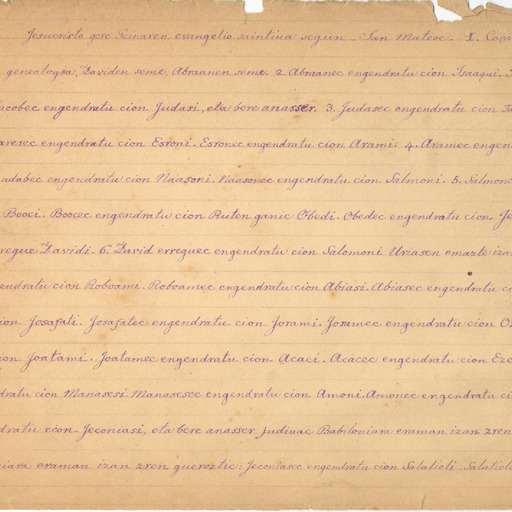 Jesucristo gore Jeinaren evangelio suintiua segun San Mateoc. 1. Capi
genealogya, Daviden seme, Abraanen seme. 2. Abraanec engendratu cion Isaaqui.
Jacobec engendratu cion Judasi, eta bere anasser. 3. Judasec engendratu cion
aresec engendratu cion Esroni. Esronec engendratu cion Arami. 4. Aramec engen
adabec engendratu cion Naasoni. Naasonec engendratu cion Salmoni. 5. Salmonc
Booci. Boocec engendratu cion Ruten ganic Obedi. Obedec engendratu cion Je
rregue Davidi. 6. David erreguec engendratu cion Salomoni Uriasen emazte izan
endratu cion Roboami. Roboamec engendratu cion Abiasi. Abiasec engendratu c
ion Josafati. Josafatec engendratu cion Jorami. Joramec engendratu cion O
ion Joatami. Joatamec engendratu cion Acaci. Acacec engendratu cion Eze
dratu cion Manasesi. Manasesec engendratu cion Amoni. Amonec engendratu ci
dratu cion Jeconiasi, eta bere anasser, judiuac Babiloniara eraman izan zren
ciara eraman izan zren gueroztic: Jeconiasec engendratu cion Salatieli. Salatiele